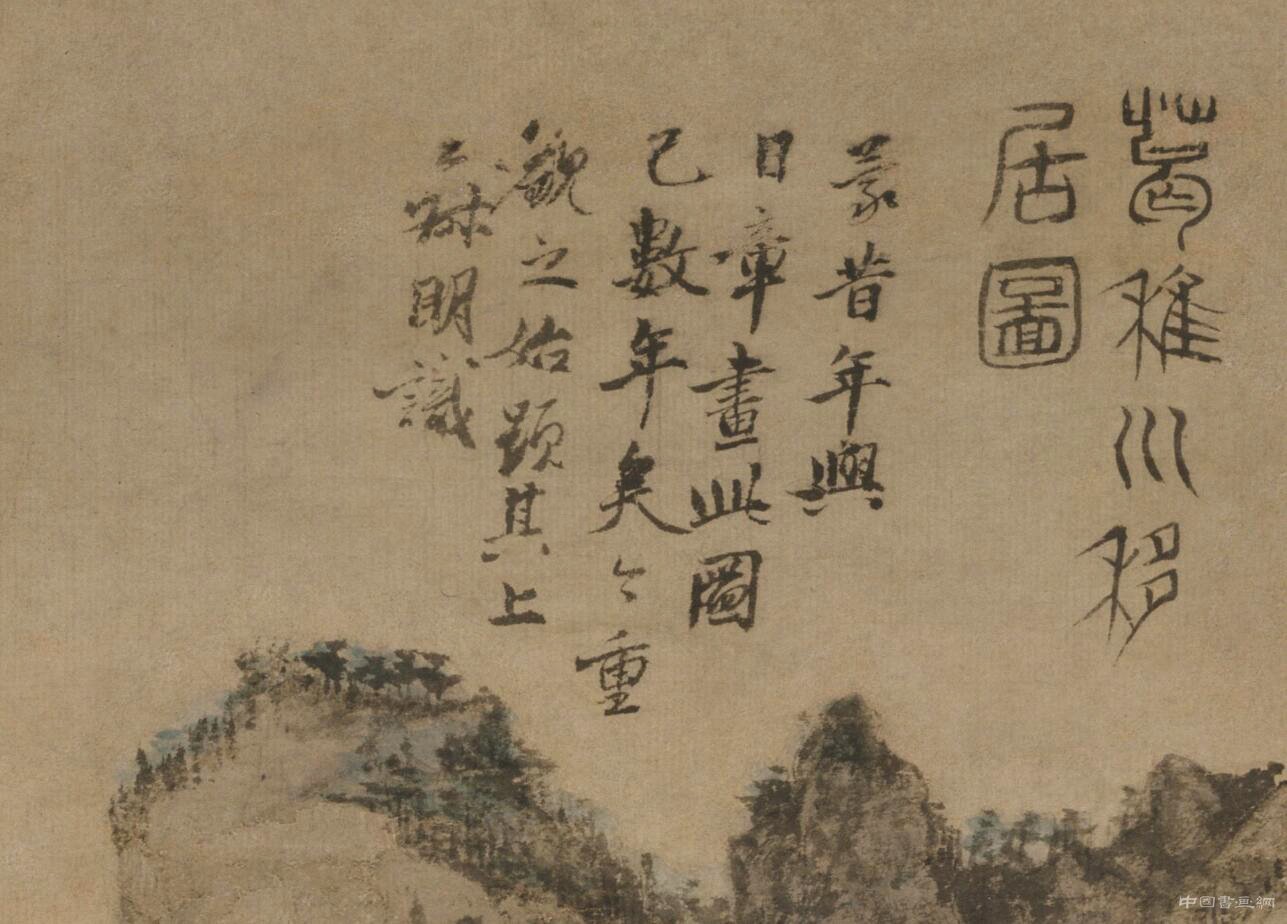 葛稚川移
居圖
蒙昔年與
日章畫此圖
已數年矣今重
觀之始題其上
王叔明識
中國書畫網